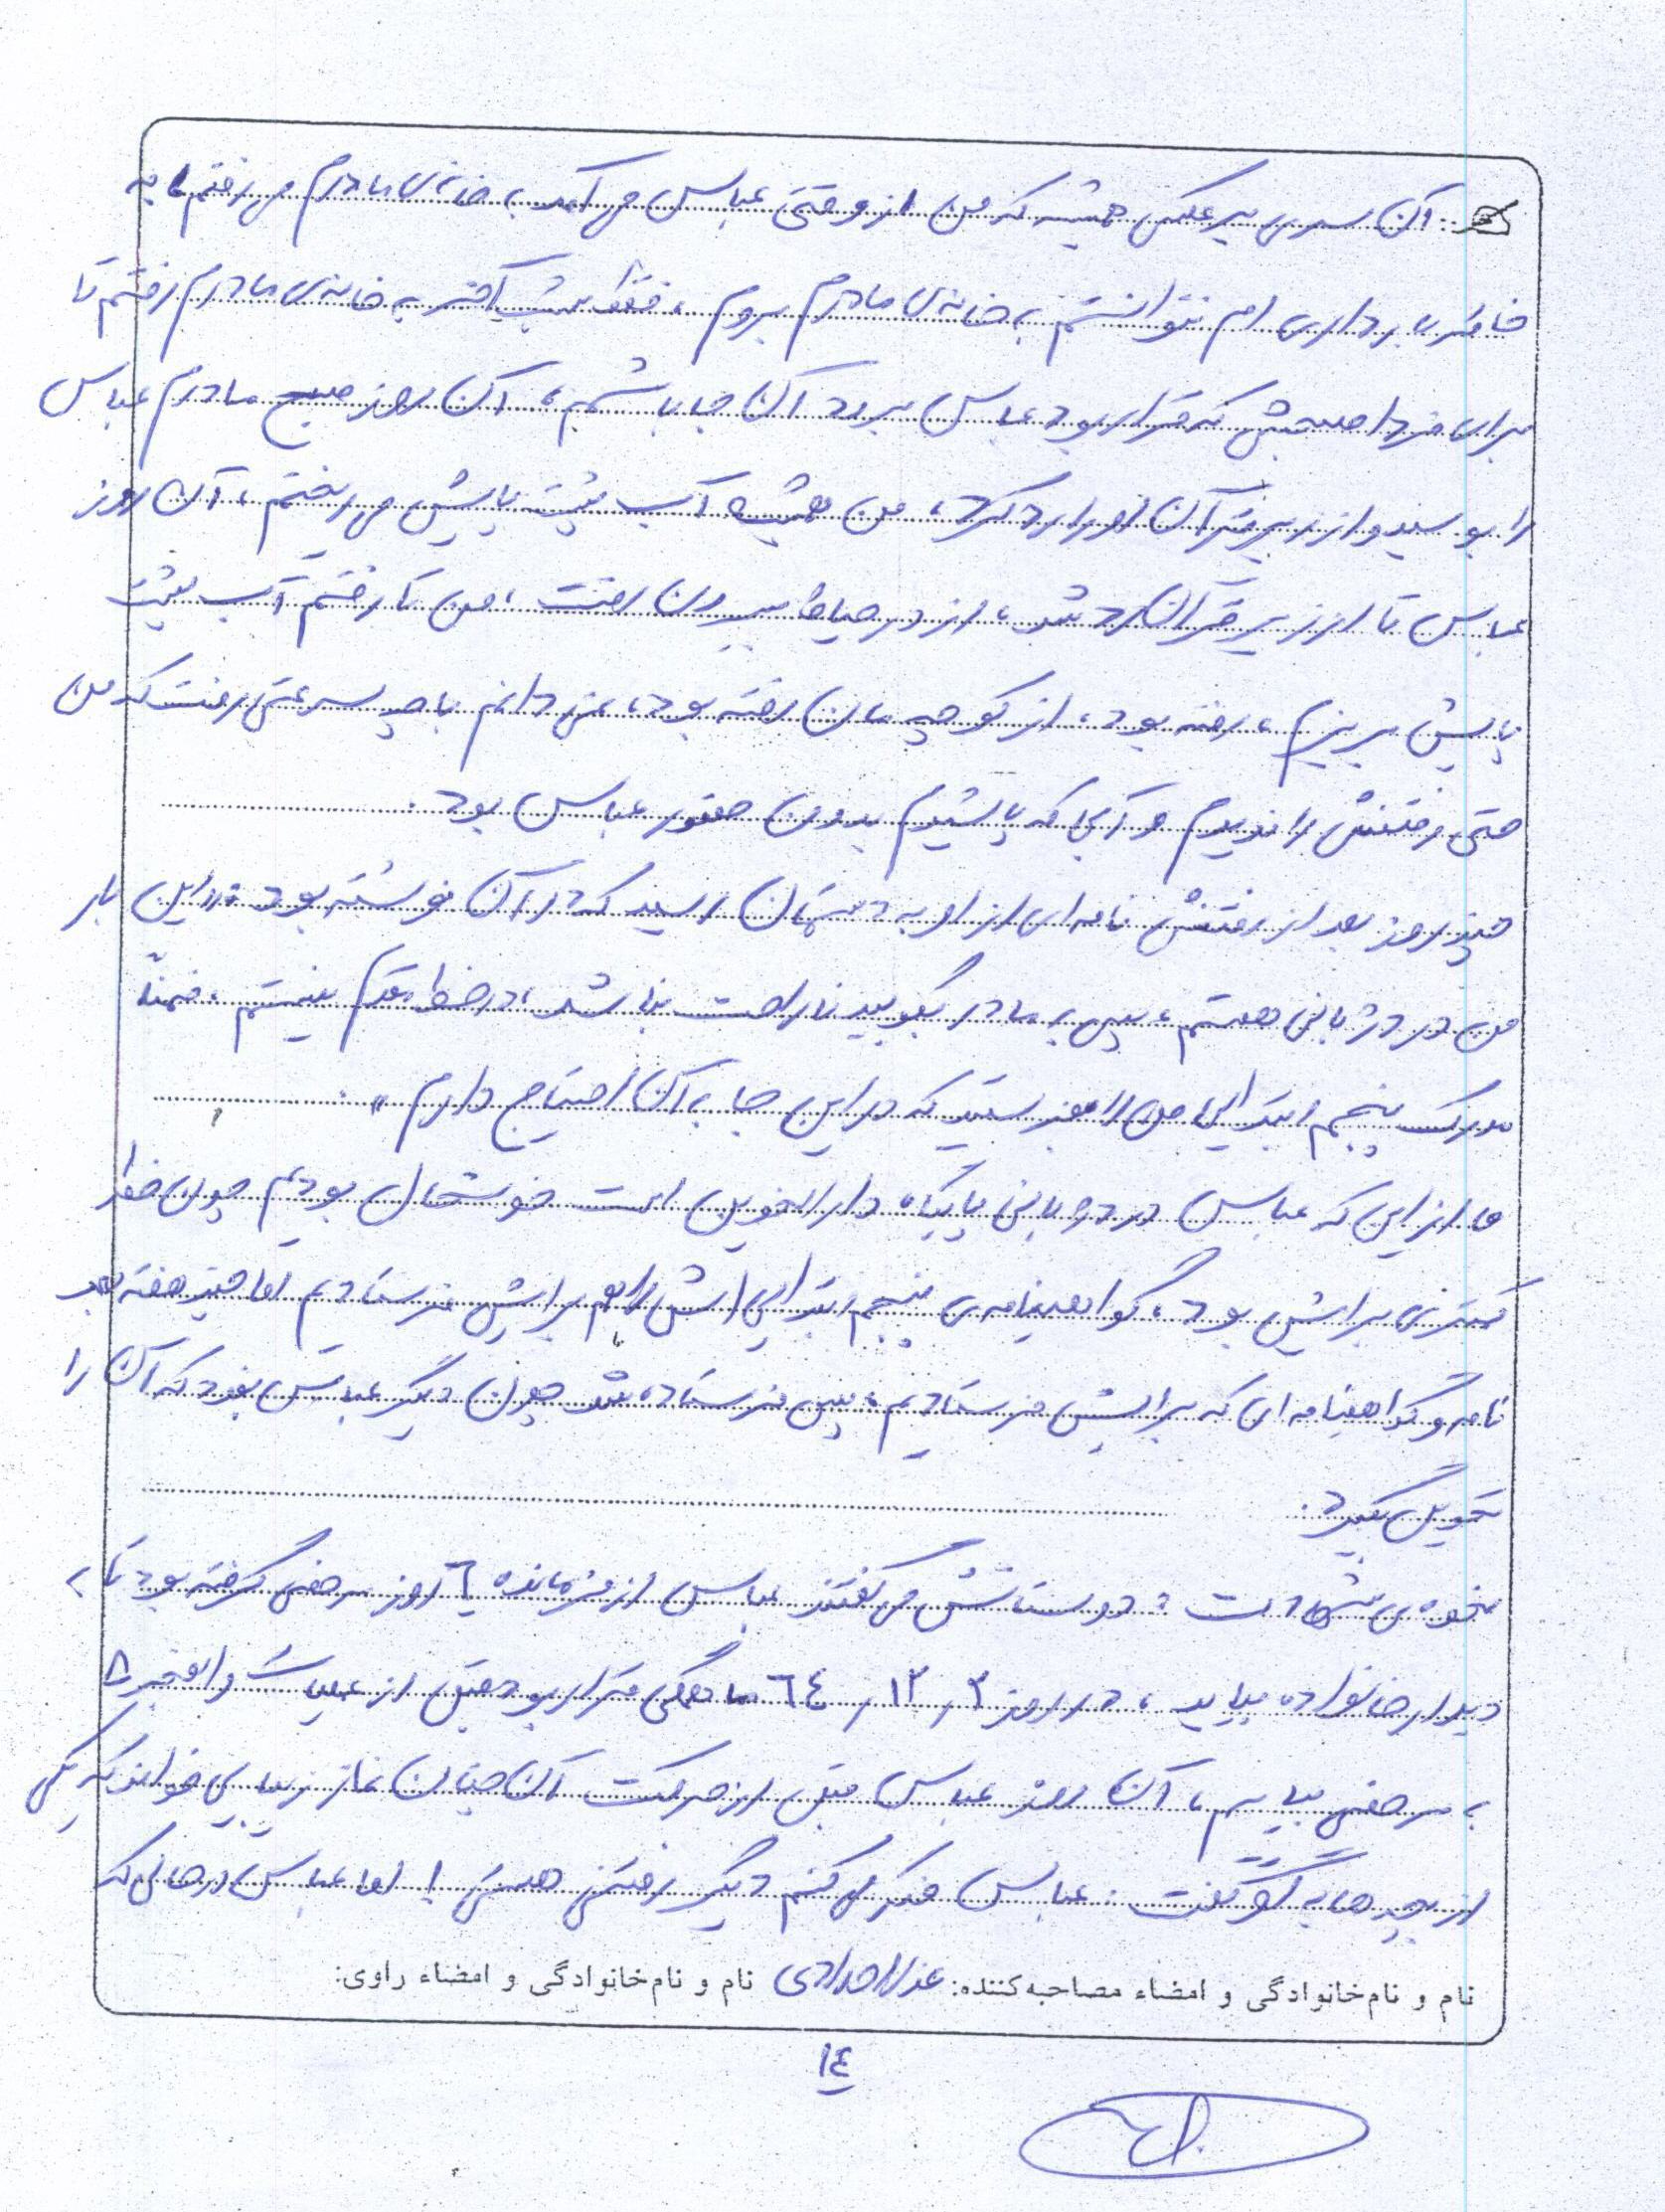 آن سری برعکس همیشه که من از وقتی عباس می آمد به خانه ی مادرم می رفتم، به
خاطر بارداری ام نتوانستم به خانه ی مادرم بروم، فقط شب آخر به خانه ی مادرم رفتم تا
برای فردا صبحش که قرار بود عباس برود آن جا باشم، آن روز صبح مادرم عباس
را بوسید و از زیر قرآن او را رد کرد، من همیشه آب پشت پایش می ریختم، آن روز
عباس تا از زیر قرآن رد شد، از در حیاط بیرون رفت، من تا رفتم آب پشت
پایش بریزم، رفته بود، از کوچه مان رفته بود، نمی دانم با چه سرعتی رفت که من
حتی رفتنش را ندیدم و آبی که پاشیدم بدون حضور عباس بود.
چند روز بعد از رفتنش نامه ای از او به دستمان رسید که در آن نوشته بود: «این بار
من در دژبانی هستم، پس به مادر بگویید ناراحت نباشد، در خط مقدم نیستم، ضمناً
مدرک پنجم ابتدایی من را بفرستید که در این جا به آن احتیاج دارم».
ما از این که عباس در دژبانی پایگاه دارالخوین است خوشحال بودیم چون خطر
کمتری برایش بود، گواهینامه ی پنجم ابتدایی اش را هم برایش فرستادیم اما چند هفته بعد
نامه و گواهینامه ای که برایش فرستادیم، پس فرستاده شد چون دیگر عباس نبود که آن را
تحویل بگیرد.
نحوه ی شهادت: دوستانش می گفتند عباس از فرمانده ٦ روز مرخصی گرفته بود تا به
دیدار خانواده بیاید، در روز ٣، ١٢، ٦٤ ما همگی قرار بود قبل از عملیات والفجر ٨
به مرخصی بیایم، آن روز عباس قبل از حرکت آن چنان نماز زیبایی خواند که یکی
از بچه ها به او گفت: عباس فکر می کنم دیگر رفتنی هستی! اما عباس در حالی که
نام و نام خانوادگی و امضاء مصاحبه کننده: نام و نام خانوادگی و امضاء راوی:
١٤